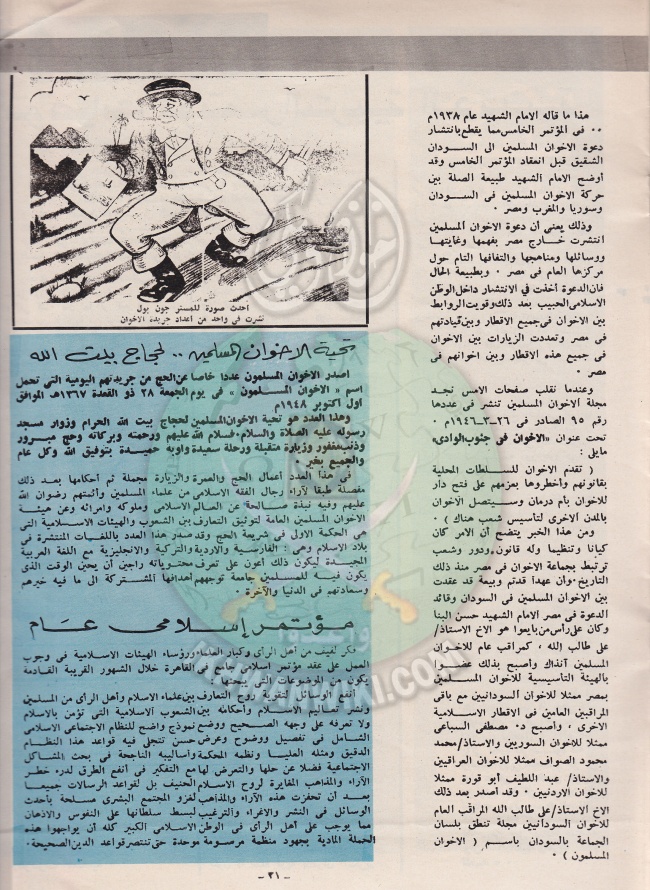 هذا ما قاله الامام الشهيد عام ١٩٣٨م
٠٠ فى المؤتمر الخامس مما يقطع بانتشار
دعوة الاخوان المسلمين الى السودان
الشقيق قبل انعقاد المؤتمر الخامس وقد
أوضح الامام الشهيد طبيعة الصلة بين
حركة الاخوان المسلمين فى السودان
وسوريا والمغرب ومصر ٠
وذلك يعنى أن دعوة الاخوان المسلمين
انتشرت خارج مصر بفهمها وغايتها
ووسائلها ومناهجها والتفافها التام حول
مركزها العام فى مصر ٠ وبطبيعة الحال
فان الدعوة أخذت فى الانتشار داخل الوطن
الاسلامى الحبيب بعد ذلك وقويت الروابط
بين الاخوان فى جميع الاقطار وبين قيادتهم
فى مصر وتعددت الزيارات بين الاخوان
فى جميع هذه الاقطار وبين اخوانهم فى
مصر ٠
وعندما نقلب صفحات الامس نجد
مجلة الاخوان المسلمين تنشر فى عددها
رقم ٩٥ الصادر فى ٢٦-٣-١٩٤٦م ٠
تحت عنوان «الاخوان فى جنوب الوادى»
مايلى :
( تقدم الاخوان للسلطات المحلية
بقانونهم وأخطروها بعزمهم على فتح دار
للاخوان بأم درمان وسيتصل الاخوان
بالمدن الاخرى لتأسيس شعب هناك ) ٠
ومن هذا الخبر يتضح أن الامر كان
كيانا وتنظيما وله قانون ودور وشعب
ترتبط بجماعة الاخوان فى مصر منذ ذلك
التاريخ وان عهدا قدتم وبيعة قد عقدت
بين الاخوان المسلمين فى السودان وقائد
الدعوة فى مصر الامام الشهيد حسن البنا
وكان على رأس من بايعوا هو الاخ الاستاذ/
على طالب الله ، كمراقب عام للاخوان
المسلمين آنذاك وأصبح بذلك عضوا
بالهيئة التأسيسية للاخوان المسلمين
بمصر ممثلا للاخوان السودانيين مع باقى
المراقبين العامين فى الاقطار الاسلامية
الاخرى ، وأصبح د٠ مصطفى السباعى
ممثلا للاخوان السوريين والاستاذ/محمد
محمود الصواف ممثلا للاخوان العراقيين
والاستاذ/ عبد اللطيف أبو قورة ممثلا
للاخوان الاردنيين ٠ وقد أصدر بعد ذلك
الاخ الاستاذ/على طالب الله المراقب العام
للاخوان السودانيين مجلة تنطق بلسان
الجماعة بالسودان باسم ( الاخوان
المسلمون ) ٠
احدث صورة للمستر جون بول
نشرت فى واحد من أعداد جريدة الاخوان
تحية الاخوان المسلمين ٠٠ لحجاج بيت الله
اصدر الاخوان المسلمون عددا خاصا عن الحج من جريدتهم اليومية التى تحمل
اسم « الاخوان المسلمون » فى يوم الجمعة ٢٨ ذو القعدة ١٣٦٧هـ الموافق
اول اكتوبر ١٩٤٨م
وهذا العدد هو تحية الاخوان المسلمين لحجاج بيت الله الحرام وزوار مسجد
رسوله عليه الصلاة والسلام، فسلام الله عليهم ورحمته وبركاته وحج مبرور
وذنب مغفور وزيارة متقبلة ورحلة سعيدة واوبة حميدة بتوفيق الله وكل عام
والجميع بخير ٠
فى هذا العدد أعمال الحج والعمرة والزيارة مجملة ثم أحكامها بعد ذلك
مفصلة طبقا لآراء رجال الفقه الاسلامى من علماء المسلمين وأئمتهم رضوان الله
عليهم وفيه نبذة صالحة عن العالم الاسلامى وملوكه وامرائه وعن هيئة
الاخوان المسلمين العامة لتوثيق التعارف بين الشعوب والهيئات الاسلامية التى
هى الحكمة الاولى فى شريعة الحج وقد صدر هذا العدد باللغات المنتشرة فى
بلاد الاسلام وهى : الفارسية والاردية والتركية والانجليزية مع اللغة العربية
المجيدة ليكون ذلك أعون على تعرف محتوياته راجين أن يحين الوقت الذى
يكون فيه للمسلمين جامعة توجههم اهدافها المشتركة الى ما فيه خيرهم
وسعادتهم فى الدنيا والآخرة ٠
مؤتمر إسلامى عام
فكر لفيف من أهل الرأى وكبار العلماء ورؤساء الهيئات الاسلامية فى وجوب
العمل على عقد مؤتمر اسلامى جامع فى القاهرة خلال الشهور القريبة القادمة
يكون من الموضوعات التى يبحثها :
أنفع الوسائل لتقوية روح التعارف بين علماء الاسلام وأهل الرأى من المسلمين
ونشر تعاليم الاسلام وأحكامه بين الشعوب الاسلامية التى تؤمن بالاسلام
ولا تعرفه على وجهه الصحيح ووضع نموذج واضح للنظام الاجتماعى الاسلامى
الشامل فى تفصيل ووضوح وعرض حسن تتجلى فيه قواعد هذا النظام
الدقيق ومثله العليا ونظمه المحكمة وأساليبه الناجحة فى بحث المشاكل
الاجتماعية فضلا عن حلها والتعرض لها مع التفكير فى أنفع الطرق لدرء خطر
الآراء والمذاهب المغايرة لروح الاسلام الحنيف بل لقواعد الرسالات جميعا
بعد أن تحفزت هذه الآراء والمذاهب لغزو المجتمع البشرى مسلحة بأحدث
الوسائل فى النشر والاغراء والترغيب لبسط سلطانها على النفوس والاذهان
مما يوجب على أهل الرأى فى الوطن الاسلامى الكبير كله أن يواجهوا هذه
الحملة المادية بجهود منظمة مرسومة موحدة حتى تنتصر قواعد الدين الصحيحة ٠
- ٣١ -